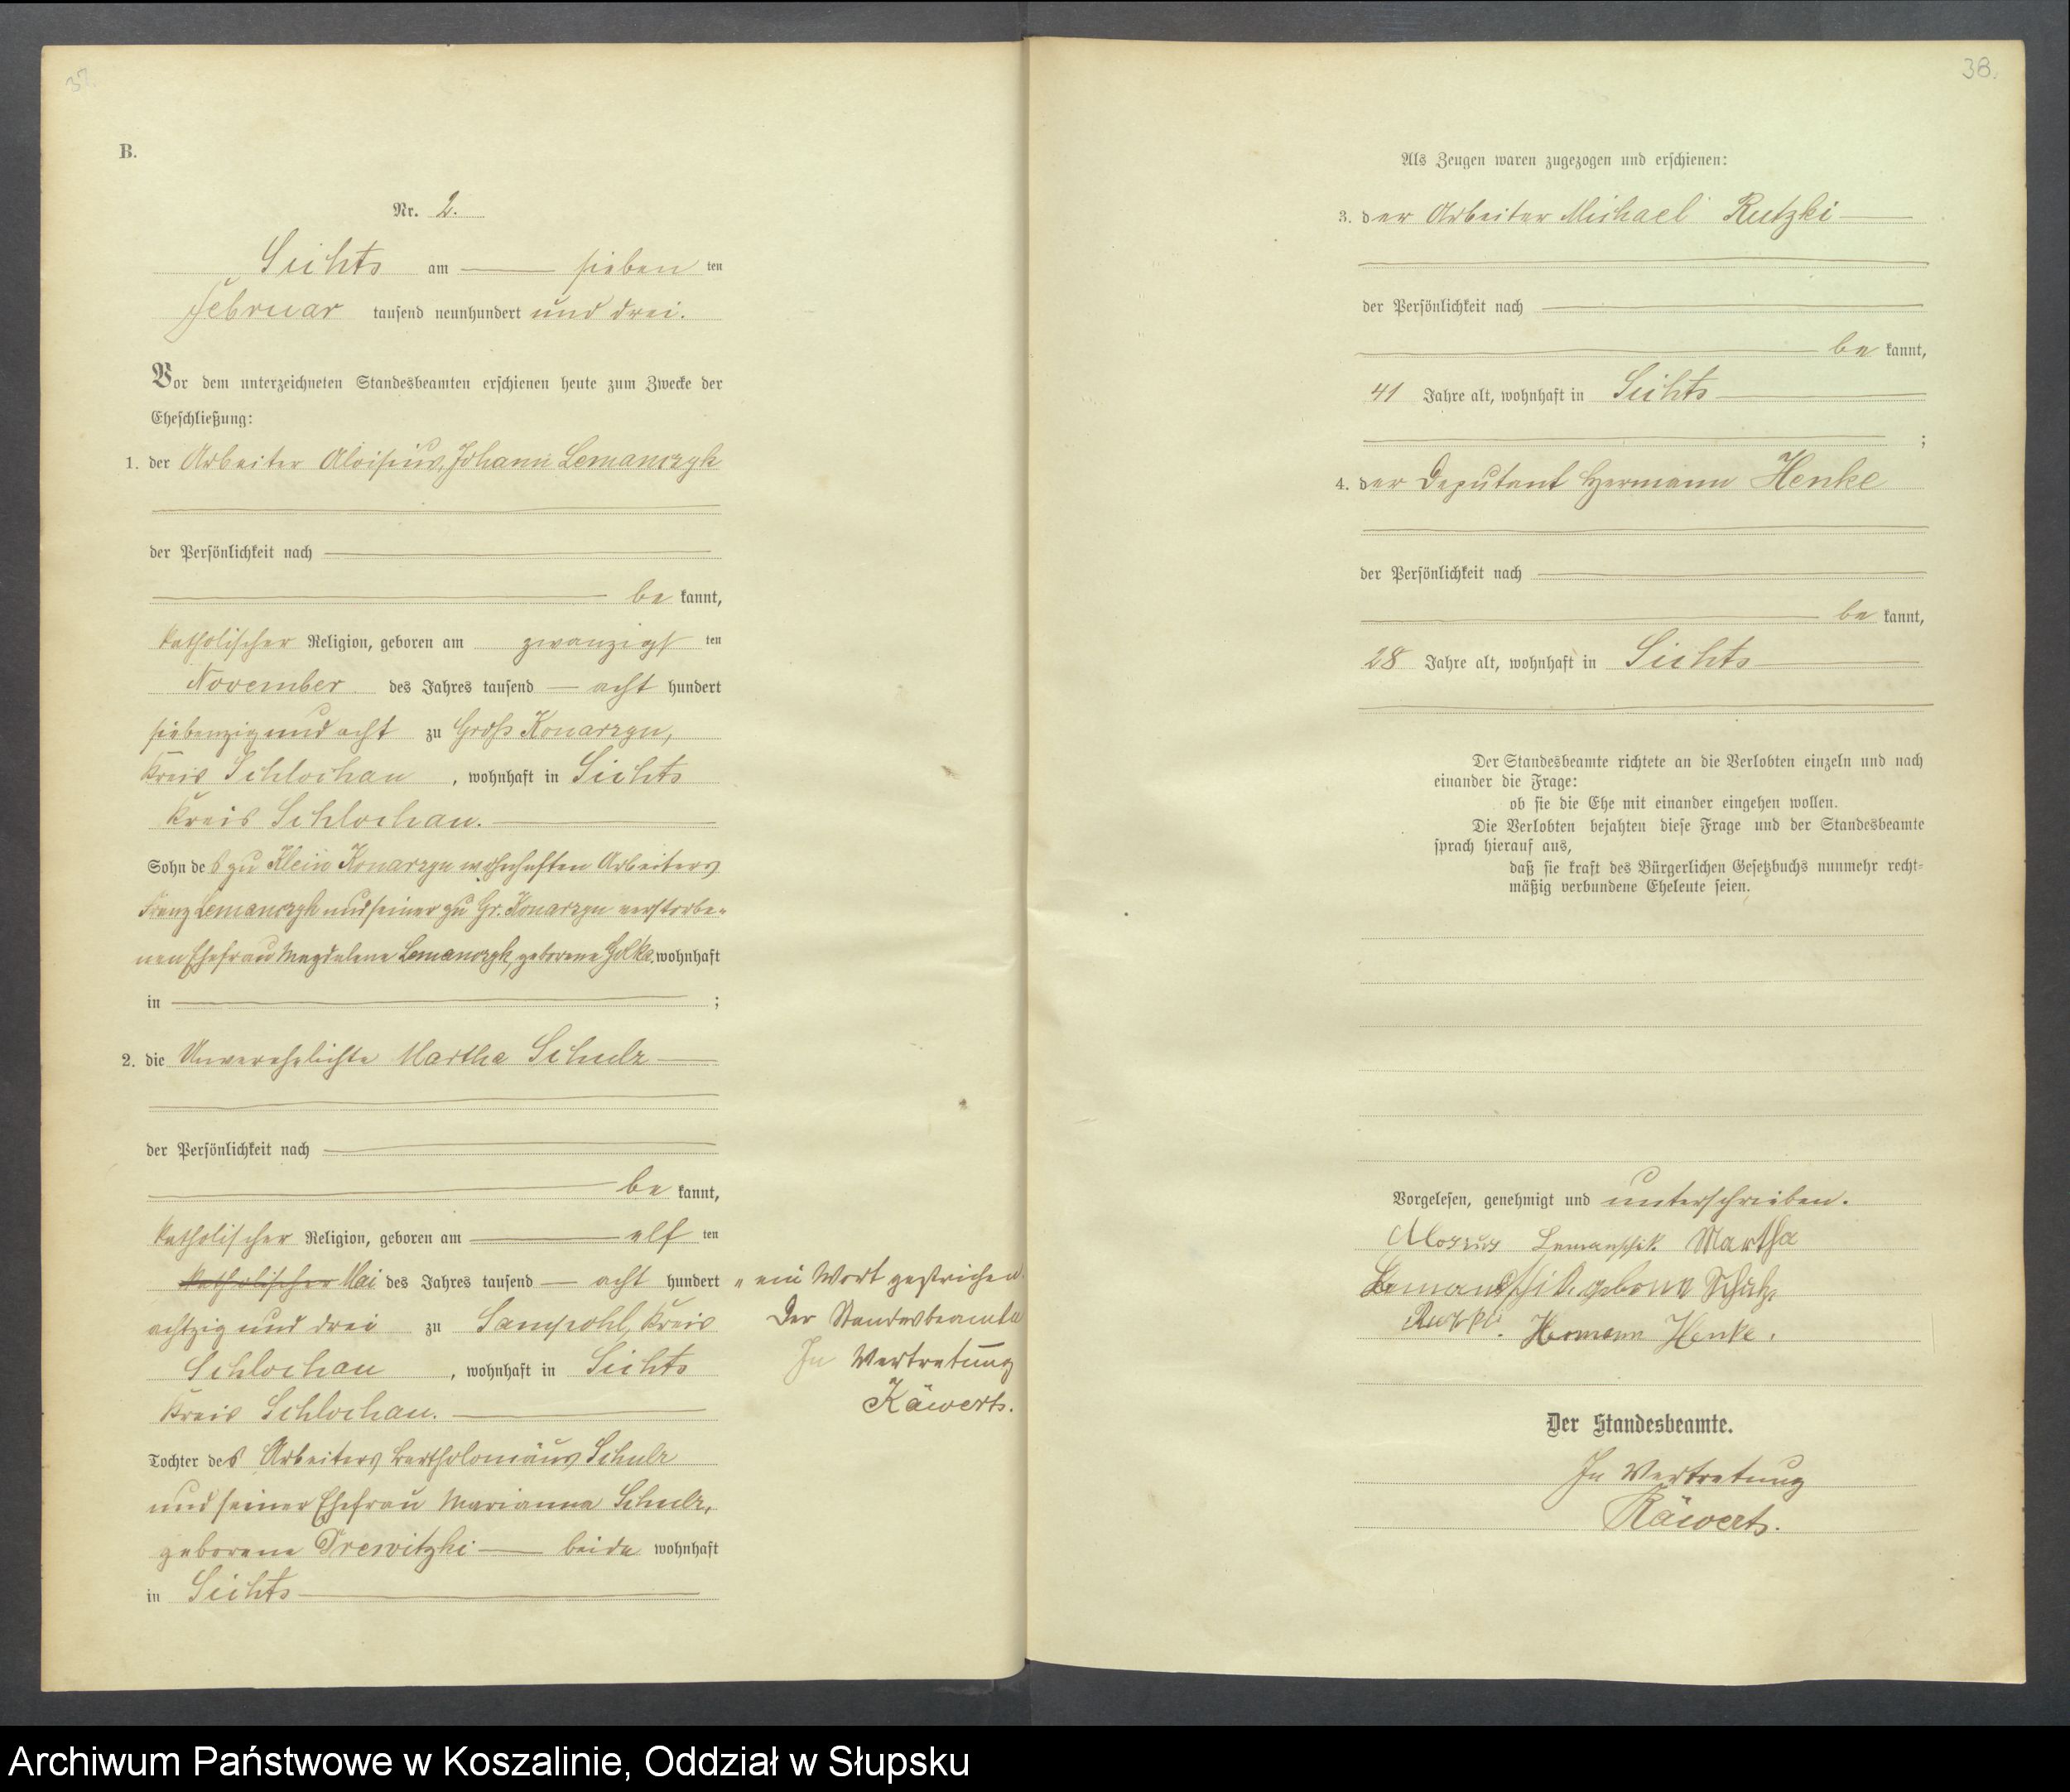 37.
B.
Nr. 2.
Sichts am sieben ten
Februar tausend neunhundert und drei.
Vor dem unterzeichneten Standesbeamten erschienen heute zum Zwecke der
Eheschließung:
1. der Arbeiter Aloisius, Johann Lemanczyk
der Persönlichkeit nach
be kannt,
katholischer Religion, geboren am zwanzigst ten
November des Jahres tausend acht hundert
siebenzig und acht zu Groß Konarzyn,
Kreis Schlochau, wohnhaft in Sichts
Kreis Schlochau.
Sohn des zu Klein Konarzyn wohnhaften Arbeiters
Franz Lemanczyk und seiner zu Gr. Konarzyn verstorbe-
nen Ehefrau Magdalena Lemanczyk, geborene Golka. wohnhaft
in ;
2. die Unverehelichte Martha Schulz
der Persönlichkeit nach
be kannt,
katholischer Religion, geboren am elf ten
katholischer Mai des Jahres tausend acht hundert
achtzig und drei zu Sampohl, Kreis
Schlochau, wohnhaft in Sichts
Kreis Schlochau.
Tochter des Arbeiters Bartholomäus Schulz
und seiner Ehefrau Marianna Schulz,
geborene Drewitzki beide wohnhaft
in Sichts
„ ein Wort gestrichen.
Der Standesbeamte
In Vertretung
Käwerts.
38.
Als Zeugen waren zugezogen und erschienen:
3. der Arbeiter Michael Rutzki
der Persönlichkeit nach
be kannt,
41 Jahre alt, wohnhaft in Sichts
;
4. der Deputant Hermann Henke
der Persönlichkeit nach
be kannt,
28 Jahre alt, wohnhaft in Sichts
Der Standesbeamte richtete an die Verlobten einzeln und nach
einander die Frage:
ob sie die Ehe mit einander eingehen wollen.
Die Verlobten bejahten diese Frage und der Standesbeamte
sprach hierauf aus,
daß sie kraft des Bürgerlichen Gesetzbuchs nunmehr recht-
mäßig verbundene Eheleute seien.
Vorgelesen, genehmigt und unterschrieben.
Lemanschik. Martha
Hermann Henke.
Der Standesbeamte.
In Vertretung
Käwerts.
Archiwum Państwowe w Koszalinie, Oddział w Słupsku